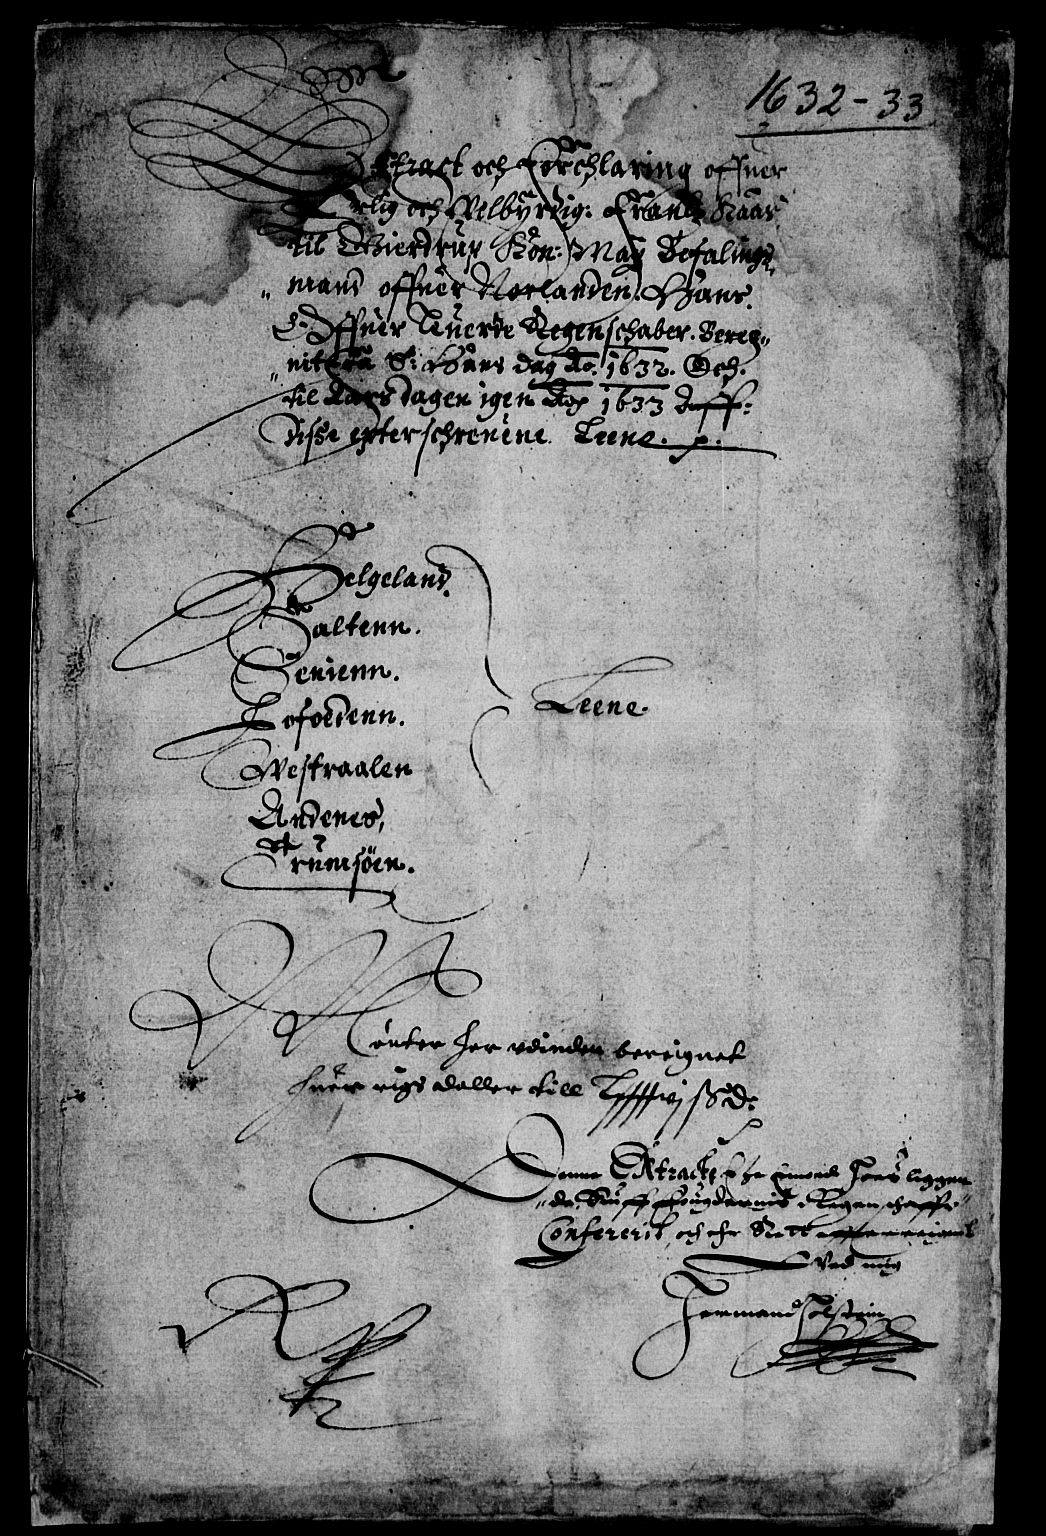 1632-33
Extract och Forchlaring offuer
Erlig och Velbÿrdig: Frantz Kaas
til Gierdrup Kon: May: Befalings
mand offuer Norlanden. Hans
Offuer Leuerde Regenschaber. Bereg-
nit fra S: Hans dag Ao. 1632. Och.
til Aars dagen igen Ao 1633 Aff
disse epterschreuene Leene.
Helgeland.
Saltenn.
Senienn.
Lofoedenn.
Westraalen
Andenes,
Trumsöen.
Leene.
Mönter her vdinden bereignet
huer rigs daller till
Denne Extract
Confererit, och
Ved mig
Herman Holstein